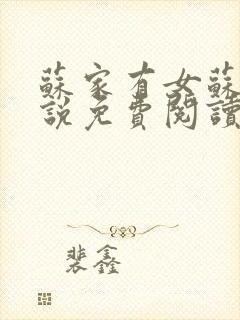 蘇家有女蘇
說免費閱讀
裴鑫